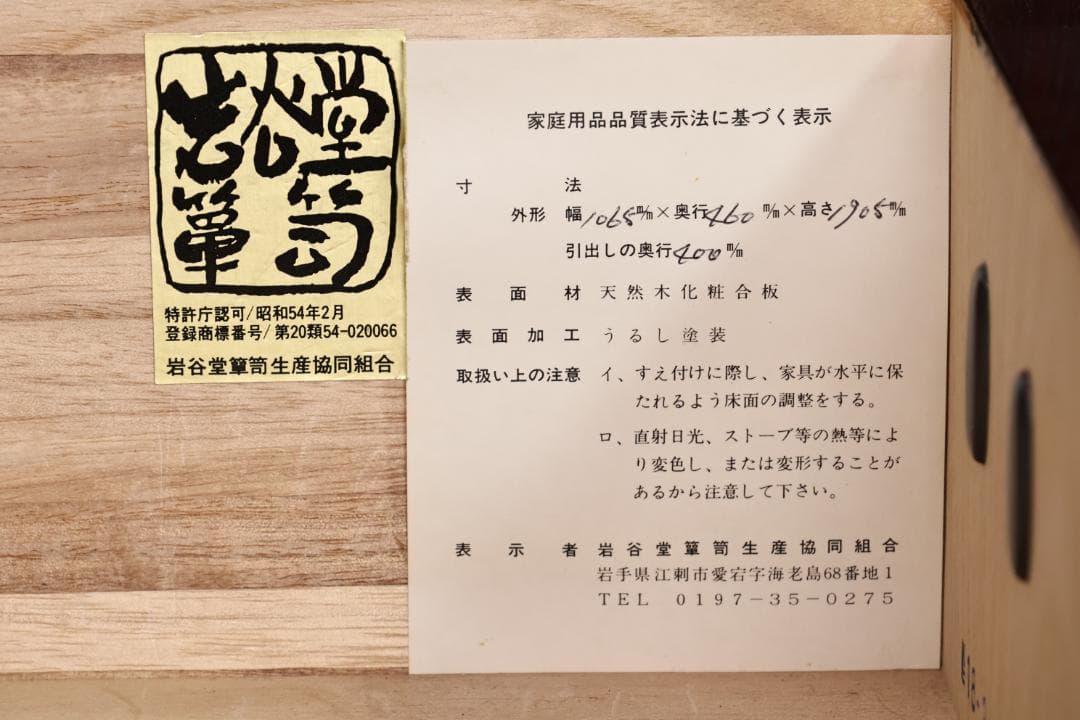 岩谷堂
簞笥
特許庁認可/昭和54年2月
登録商標番号/第20類54-020066
岩谷堂簞笥生産協同組合
家庭用品品質表示法に基づく表示
寸法
外形 幅1065m/m×奥行460m/m×高さ1905m/m
引出しの奥行400m/m
表面材 天然木化粧合板
表面加工 うるし塗装
取扱い上の注意 イ、すえ付けに際し、家具が水平に保
たれるよう床面の調整をする。
ロ、直射日光、ストーブ等の熱等によ
り変色し、または変形することが
あるから注意して下さい。
表示者 岩谷堂簞笥生産協同組合
岩手県江刺市愛宕字海老島68番地1
TEL 0197-35-0275